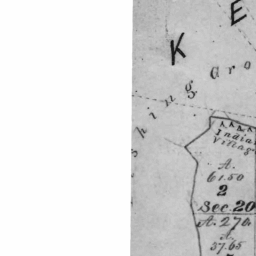 K E
shing Gro
Indian
Village
A.
61.50
2
Sec. 20
A. 270.
A.
37.65